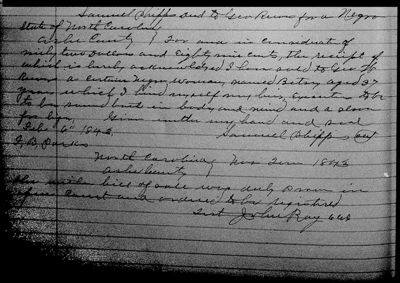 Samuel Phipps Deed to Geo Reeves for a Negro
State of North Carolina
Ashe County } For and in consideration of
ninety two Dollars and Eighty nine cents, the receipt of
which is hereby acknowledged I have sold to Geo W
Reeves a certain Negro woman named Betsy aged 37
years which I bind myself my heirs Executors &c to
be sound both in body and mind and a slave
for life, Given under my hand and seal
Feby 6th 1843 Samuel Phipps
J. B. Parks
North Carolina } Nov Term 1843
Ashe County
The within bill of sale was duly proven in
open Court and ordered to be registered
Test John Ray CCC